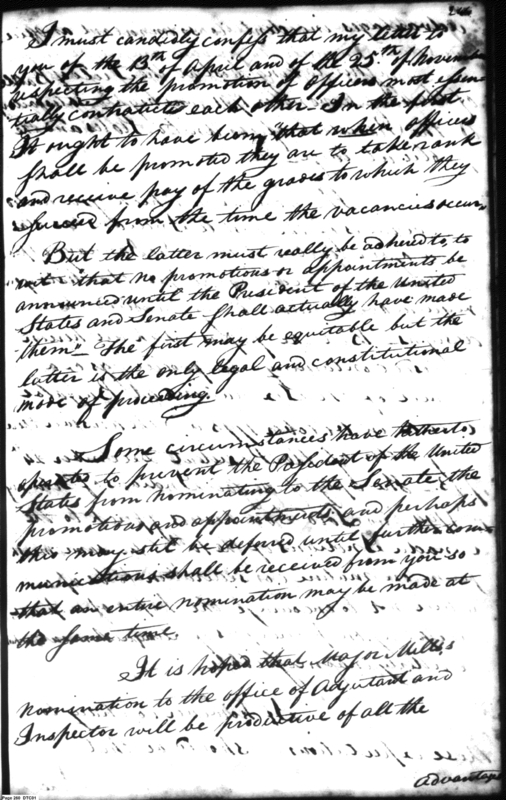 I must candidly confess that my letter to
you of the 13th of April and of the 25th of November
respecting the promotion of Officers most essen-
tially contradicts each other. In the first
It ought to have been, "that when officers
shall be promoted they are to take rank
and receive pay of the grades to which they
succeed from the time the vacancies occur-
But the latter must really be adhered to, to
wit - that no promotions or appointments be
announced until the President of the United
States and Senate shall actually have made
them" - The first may be equitable but the
latter is the only legal and constitutional
mode of proceeding.
Some circumstances have hitherto
operated to prevent the President of the United
States from nominating to the Senate, the
promotions and appointments and perhaps
this may still be deferred until further com-
munications shall be received from you so
that an entire nomination may be made at
the same time.
It is hoped that Major Mills's
nomination to the office of Adjutant and
Inspector will be productive of all the
advantages
Page 266 DTC01